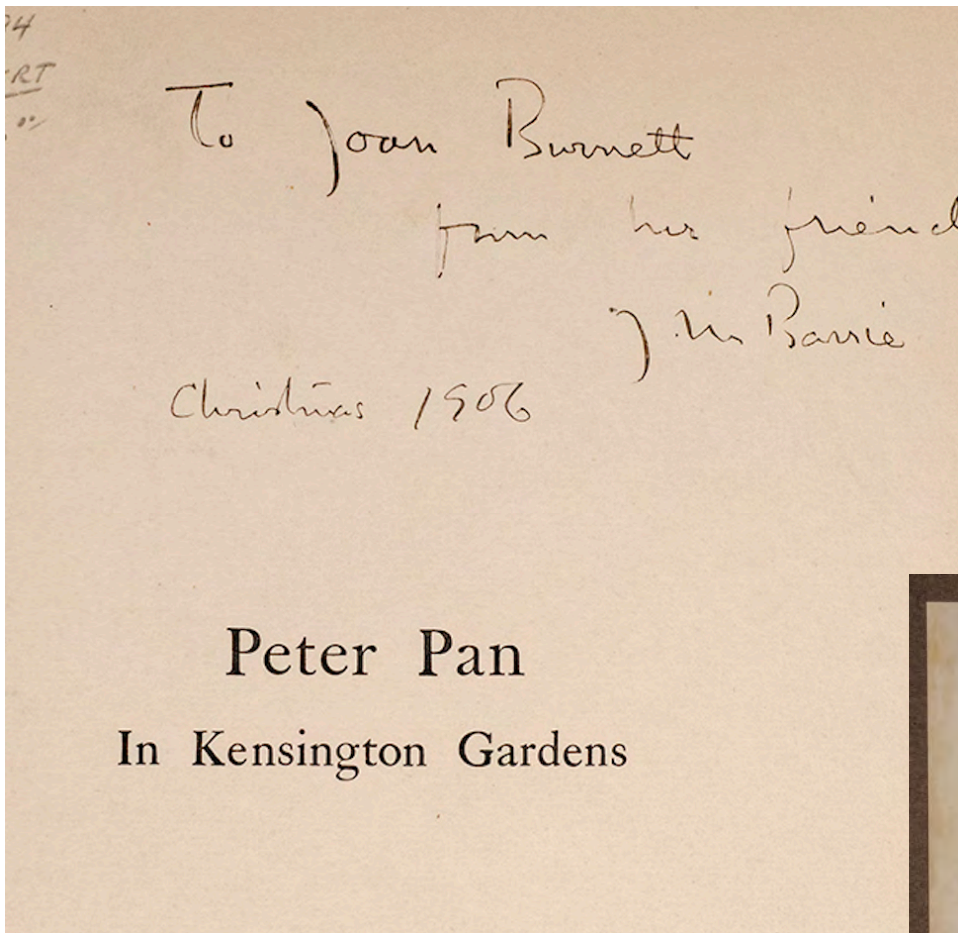 To Joan Burnett
from her friend
J. M. Barrie
Christmas 1906
Peter Pan
In Kensington Gardens